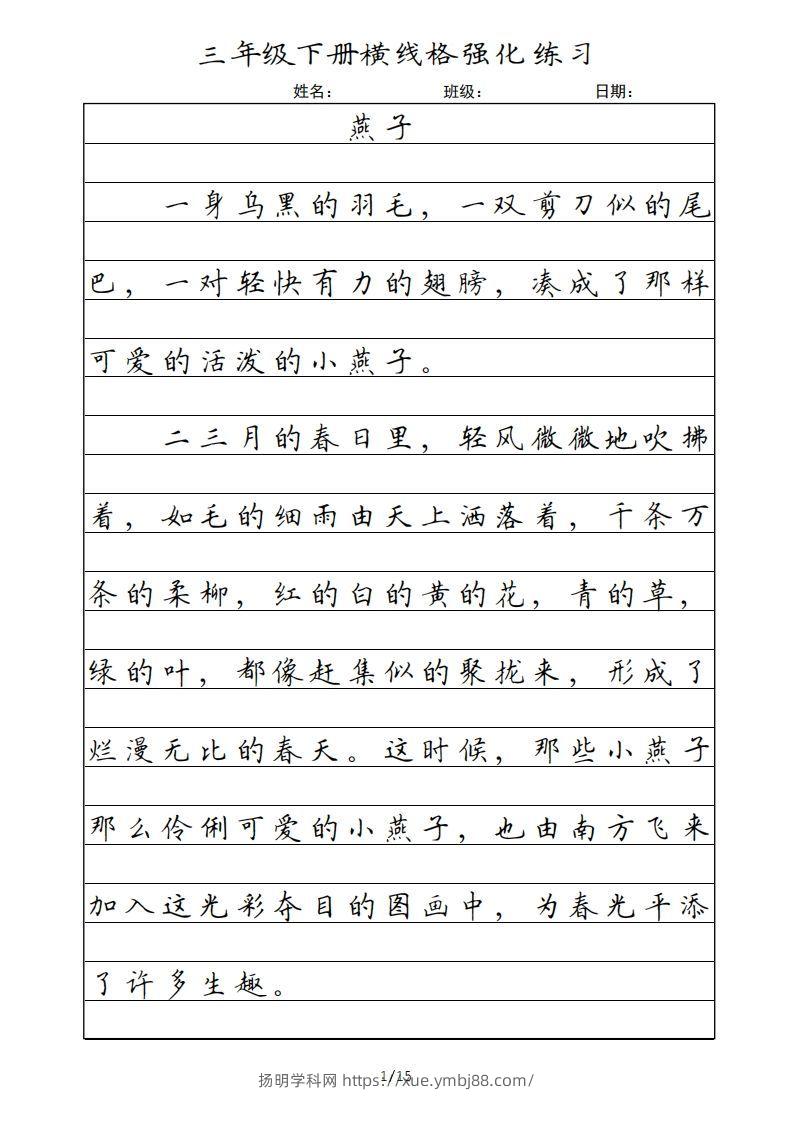 三年级下册横线格强化练习
姓名： 班级： 日期：
燕子
一身乌黑的羽毛，一双剪刀似的尾
巴，一对轻快有力的翅膀，凑成了那样
可爱的活泼的小燕子。
二三月的春日里，轻风微微地吹拂
着，如毛的细雨由天上洒落着，千条万
条的柔柳，红的白的黄的花，青的草，
绿的叶，都像赶集似的聚拢来，形成了
烂漫无比的春天。这时候，那些小燕子
那么伶俐可爱的小燕子，也由南方飞来
加入这光彩夺目的图画中，为春光平添
了许多生趣。
1/15
扬明学科网 https://xue.ymbj88.com/